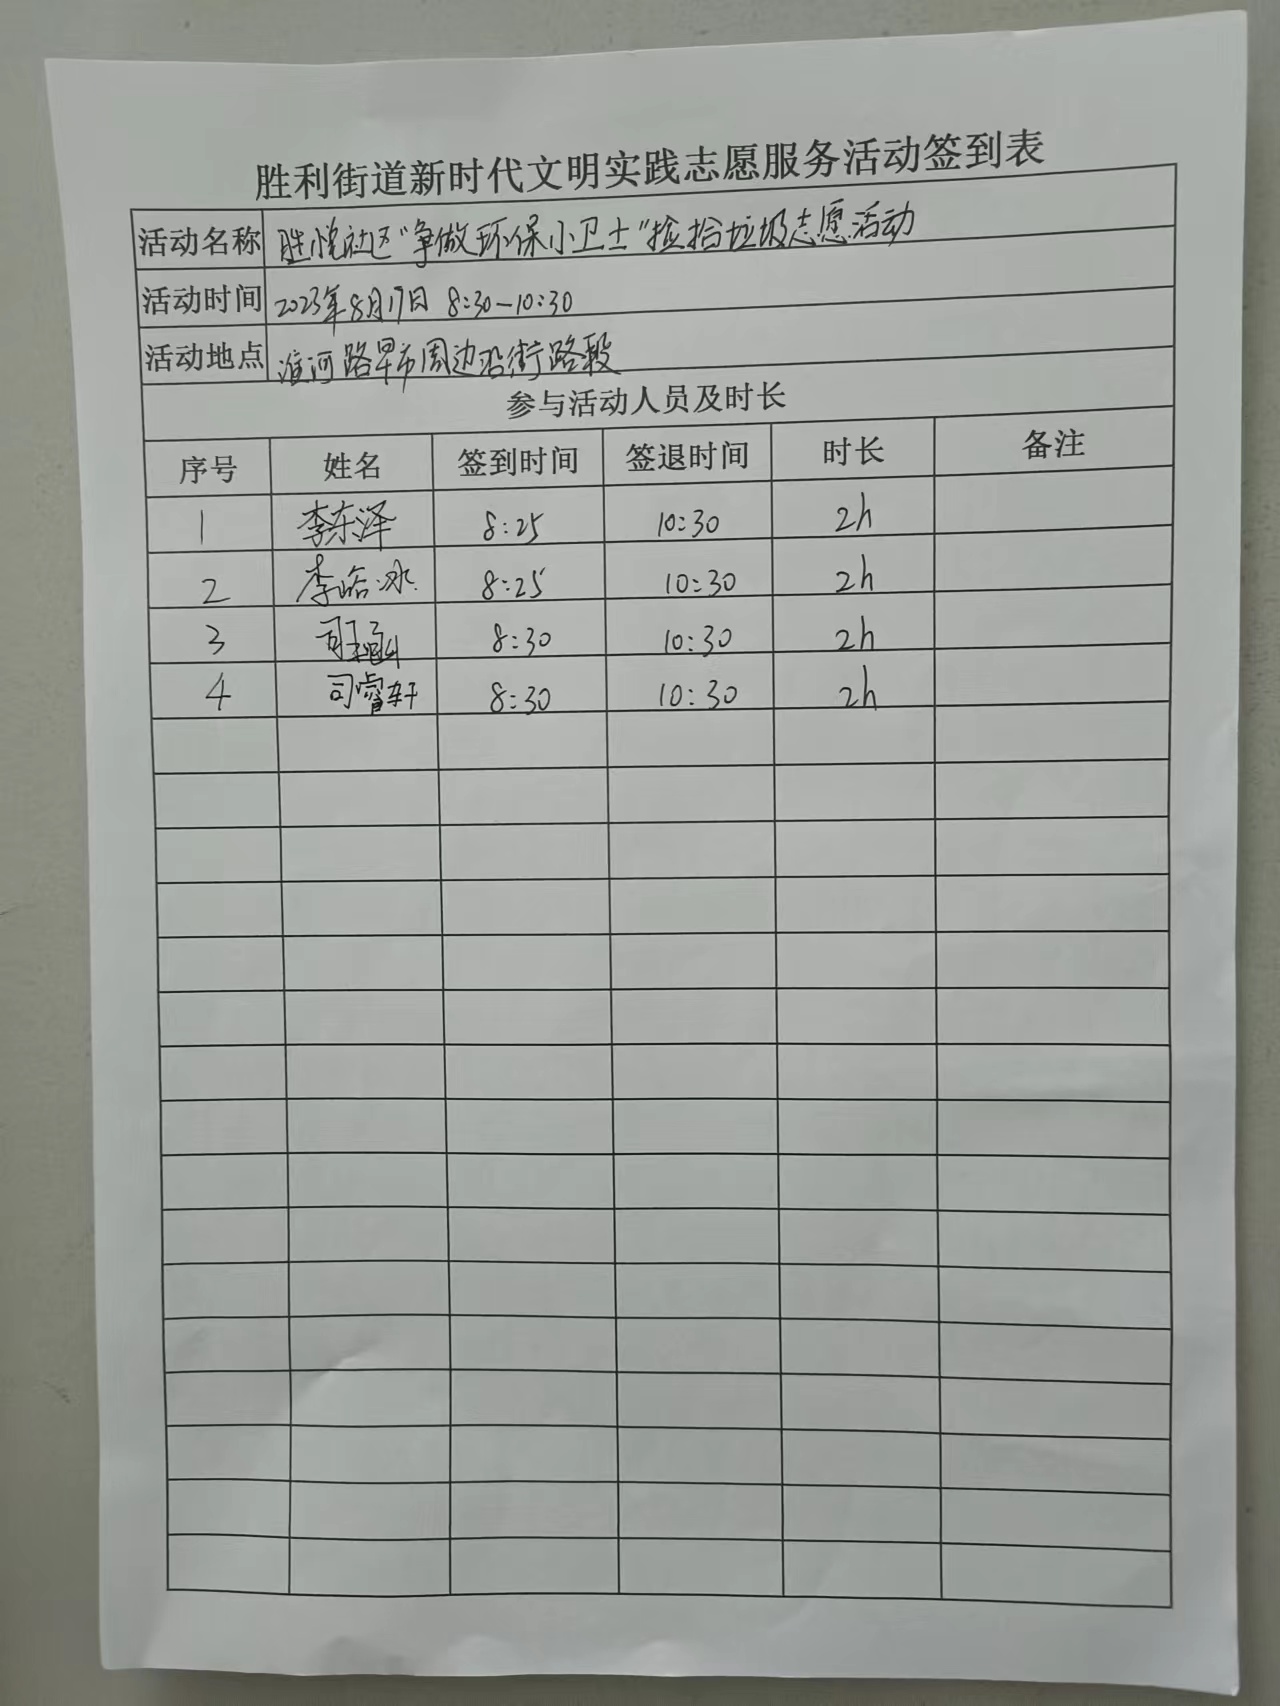 胜利街道新时代文明实践志愿服务活动签到表
活动名称 胜悦社区“争做环保小卫士”捡拾垃圾志愿活动
活动时间 2023年8月17日 8:30—10:30
活动地点 淮河路早市周边沿街路段
参与活动人员及时长
序号 姓名 签到时间 签退时间 时长 备注
1 李东泽 8:25 10:30 2h
2 李皓冰 8:25 10:30 2h
3 司 8:30 10:30 2h
4 司睿轩 8:30 10:30 2h